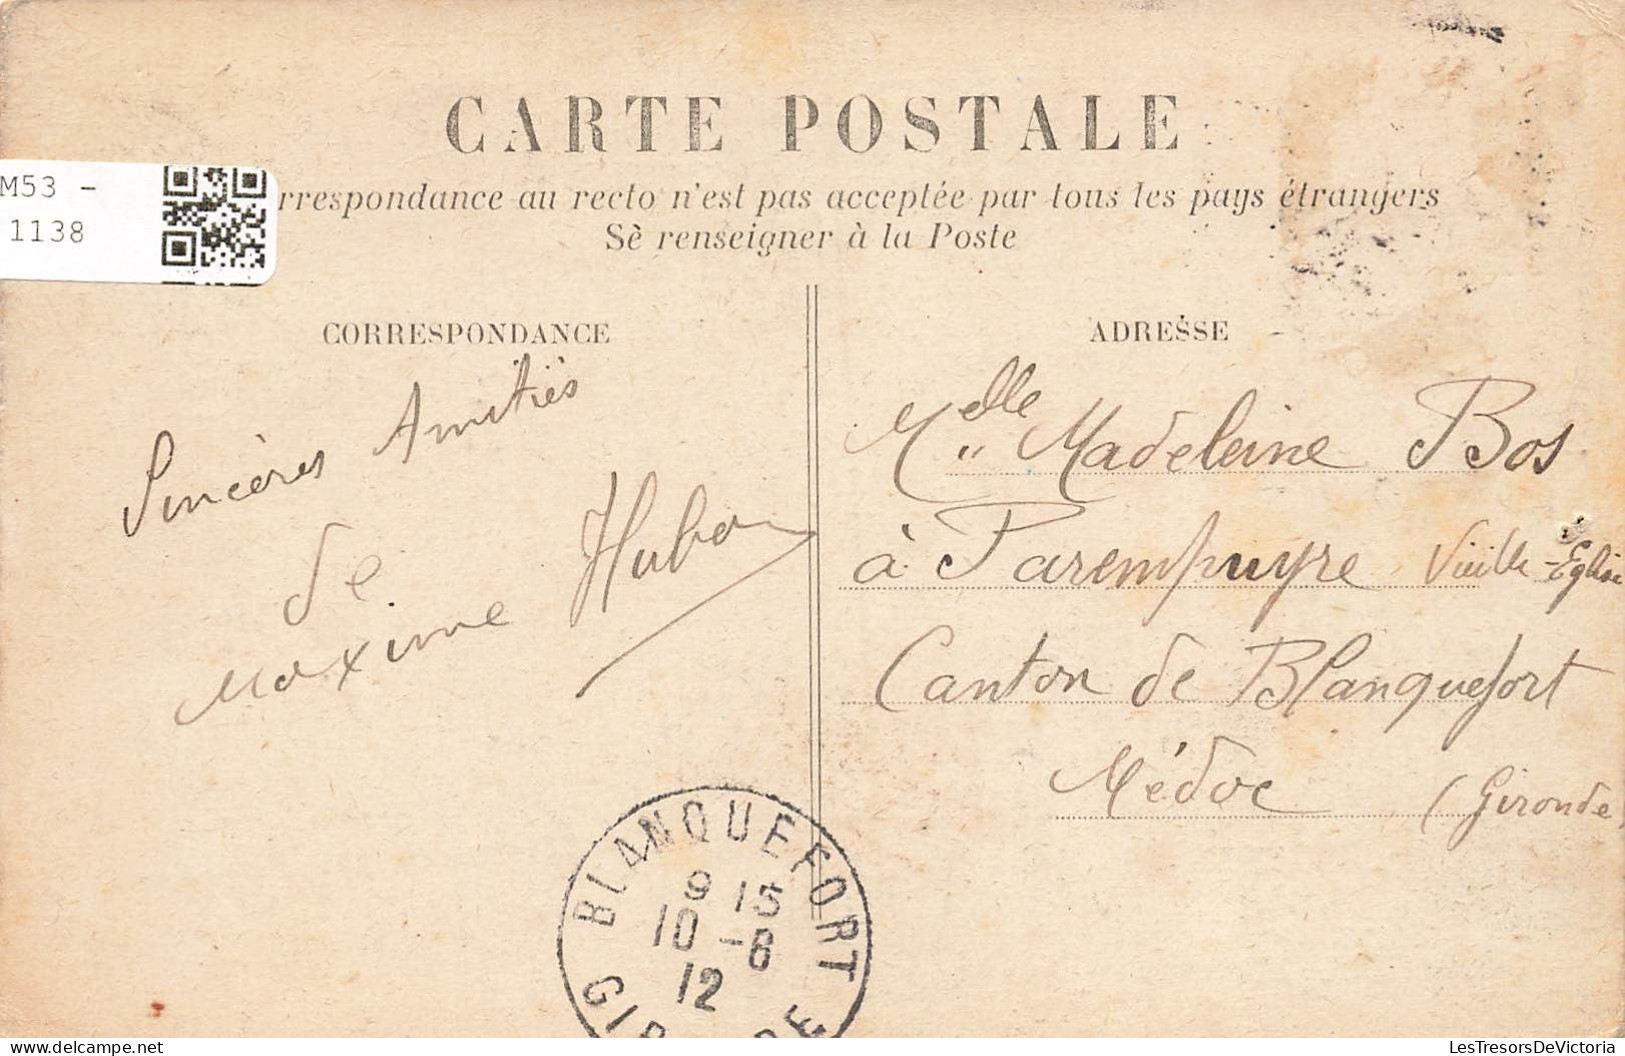 CARTE POSTALE
M53 -
1138
rrespondance au recto n'est pas acceptée par tous les pays étrangers
Se renseigner à la Poste
CORRESPONDANCE
Sincères Amitiés
de
Maxime
ADRESSE
Melle Madeleine Bos
à Parempuyre Vieille-Eglise
Canton de Blanquefort
Médoc (Gironde)
BLANQUEFORT
9 15
10 -8
12
GIRONDE
LesTresorsDeVictoria